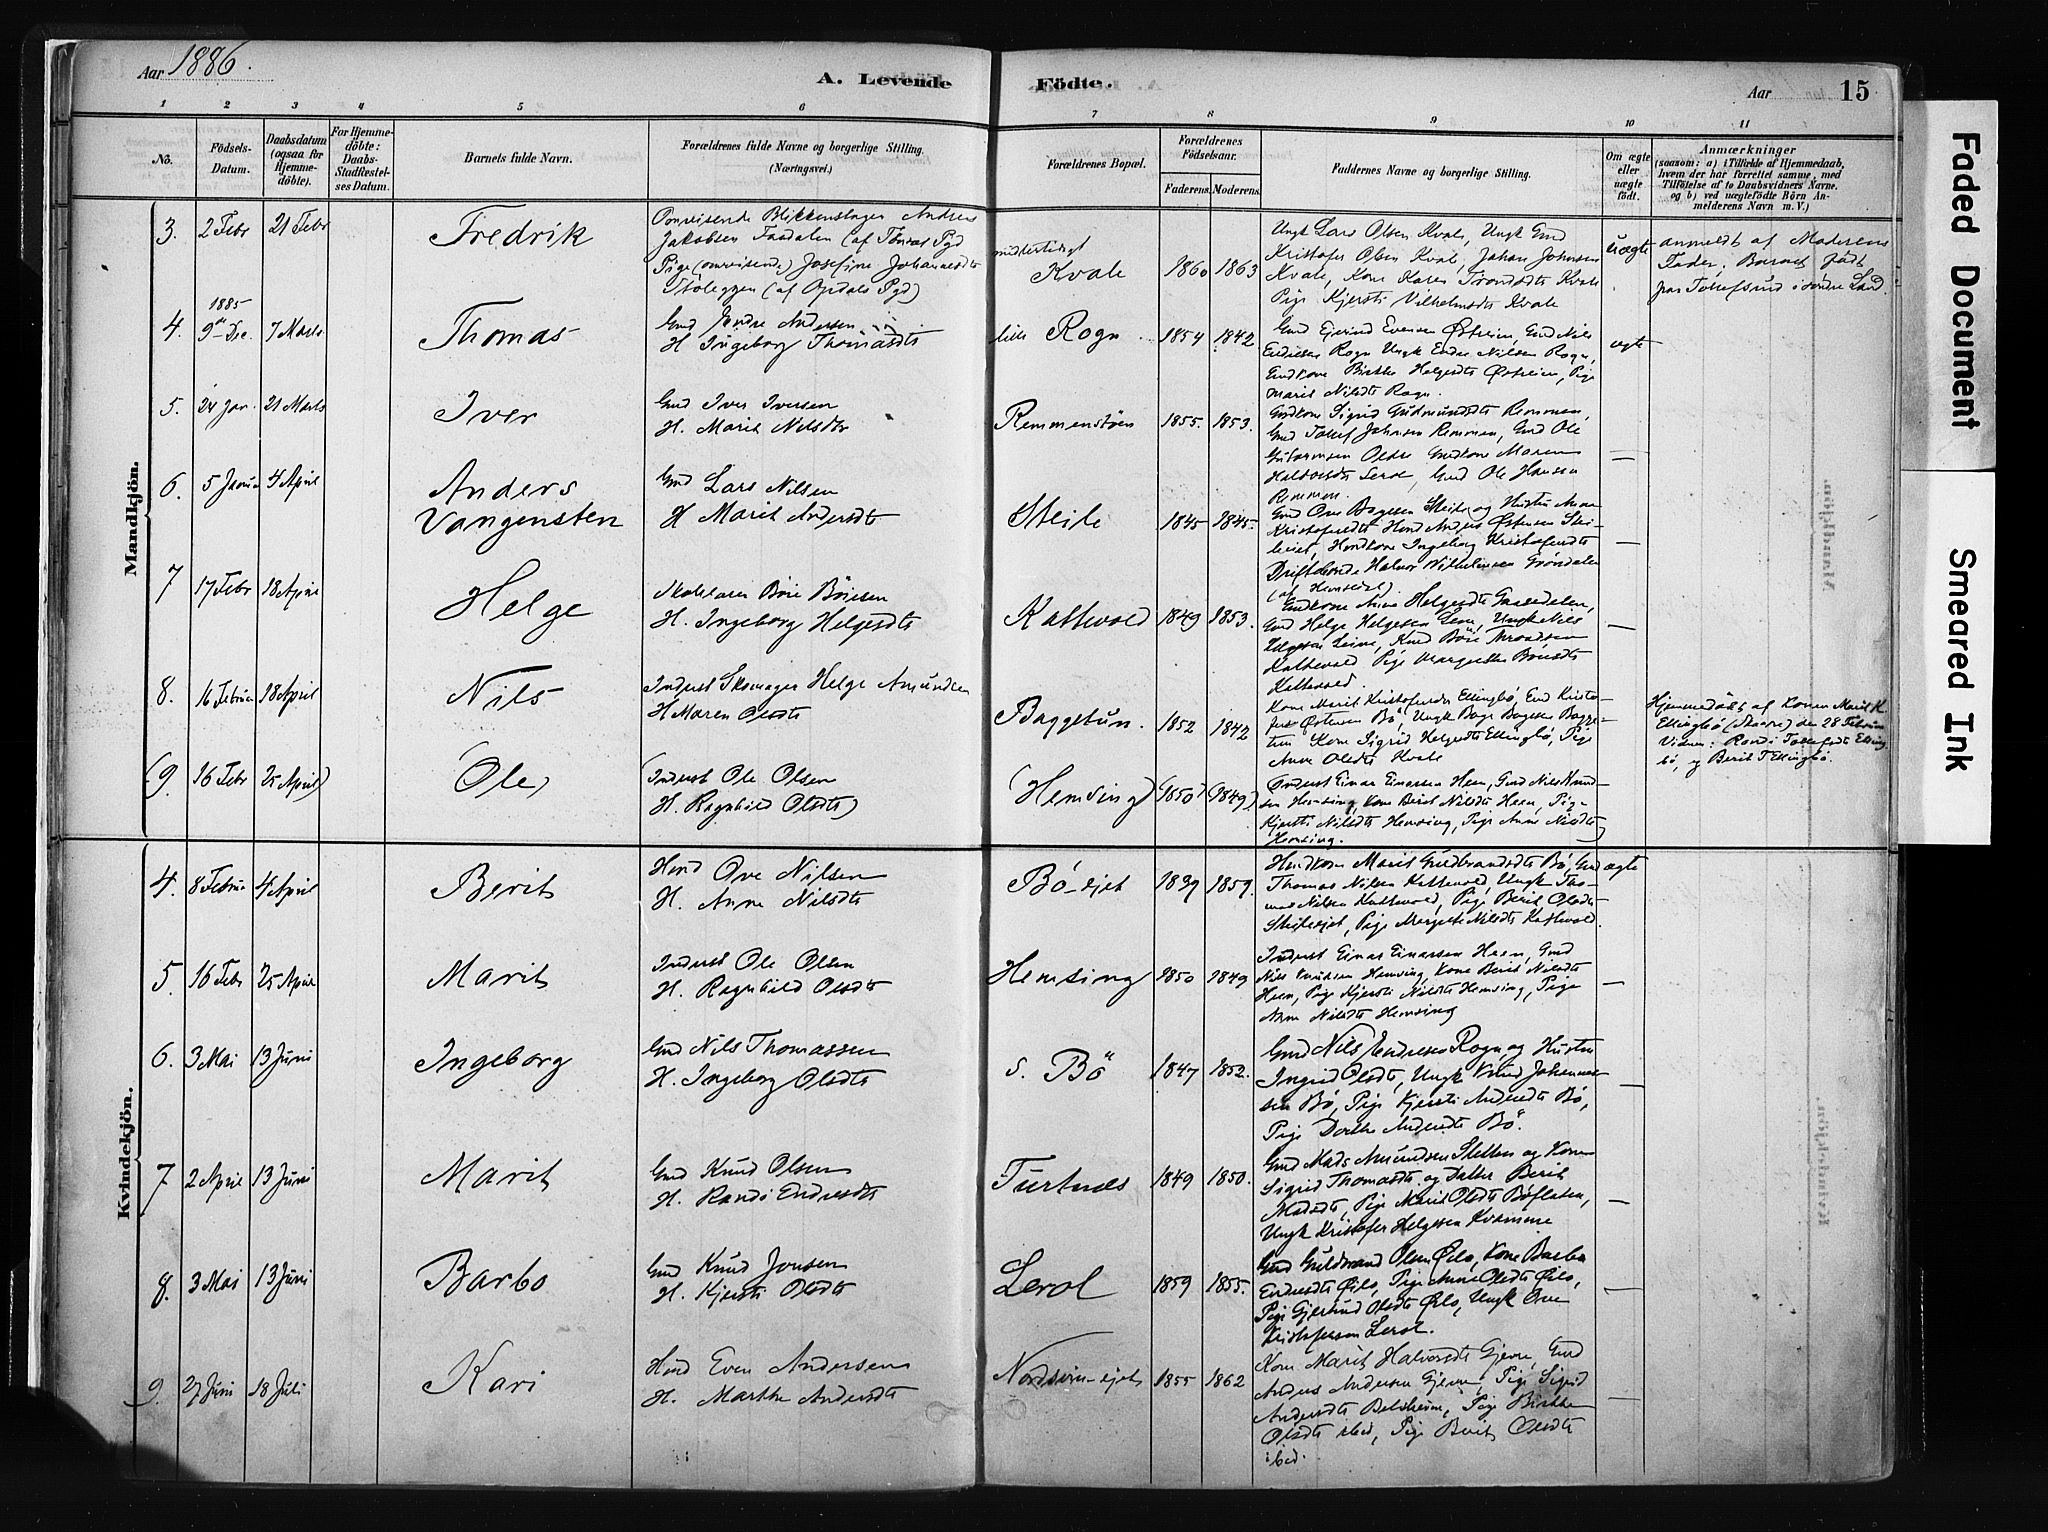 Aar 1886.
A. Levende
Födte.
Aar
15
1
2
3
4
5
6
7
8
9
10
11
No.
Födsels-
Datum.
Daabsdatum
(ogsaa for
Hjemme-
döbte).
For Hjemme-
döbte:
Daabs-
Stadfæstel-
ses Datum.
Barnets fulde Navn.
Forældrenes fulde Navne og borgerlige Stilling.
(Næringsvei.)
Forældrenes Bopæl.
Forældrenes
Födselsaar.
Faderens.
Moderens.
Faddernes Navne og borgerlige Stilling.
Om ægte
eller
uægte
födt.
Anmærkninger
(saasom: a) i Tilfælde af Hjemmedaab,
hvem der har forrettet samme, med
Tilföielse af to Daabsvidners Navne.
og b) ved uægtefödte Börn An-
melderens Navn m. V.)
Mandkjön.
3. 2 Febr 21 Febr
Fredrik
Omreisende Blikkenslager Andreas
Jakobsen (af Pgd
Pige (omreisende) Josefine Johannesdtr
(af Opdals Pgd)
midlertidigt
Kvale
1860 1863
Ungk Lars Olsen Kvale, Ungk Gmd
Kristofer Olsen Kvale, Johan Johnsen
Kvale, Kone Karen Trondsdtr Kvale
Pige Kjersti Vilhelmsdtr Kvale
uægte
anmeldt af Moderens
Fader; Barnet født
paa Tollefsrud i söndre Land.
4. 1885
9de Dec. 7 Marts
Thomas
Gmd Endre Andersen
H Ingeborg Thomasdtr
lille Rogn
1854 1842
Gmd Ejvind Evensen Østrein, Gmd Nils
Endresen Rogn Ungk Endre Nilsen Rogn,
Gmdkone Birthe Helgesdtr Østrein, Pige
Marit Nilsdtr Rogn.
ægte
5. 24 Jan. 21 Marts
Iver
Gmd Iver Iversen
H. Marit Nilsdtr
Remmenstöen
1855. 1853.
Gmdkone Sigrid Gudmundsdtr Remmen,
Gmd Tollef Johnsen Remmen, Gmd Ole
Guttormsen Gmdkone Maren
Halvorsdtr Lerol, Gmd Ole Hansen
Remmen.
—
6. 5 Janua 4 April
Anders
Vangensten
Gmd Lars Nilsen
H Marit Andersdtr
Steile
1845 1845.
Gmd Ove Bagesen Steile og Hustru Anne
Kristofersdtr Hmd Anders Østensen Stei-
leiet, Hmdkone Ingeborg Kristofersdtr
Driftebonde Halvor Vilhelmsen Gröndalen
(af Hemsedal)
—
7 17 Febr 18 April
Helge
Skolelærer Böie Böiesen
H. Ingeborg Helgesdtr
Kattevold
1849 1853.
Gmdkone Anne Helgesdtr Gaasedalen,
Gmd Helge Helgesen Leine, Ungk Nils
Helgesen Leine, Kmd Böie Trondsen
Kattevold Pige Margrethe Böiesdtr
Kattevold.
—
8. 16 Februa 18 April
Nils
Inderst Skomager Helge Amundsen
H Maren Olsdtr
Baggetun.
1852 1842
Kone Marit Kristofersdtr Ellingbø, Gmd Kristo-
fer Østensen Bö, Ungk Bage Bagesen Bagge-
tun Kone Sigrid Helgesdtr Ellingbø, Pige
Anne Olsdtr Kvale
Hjemmedøbt af Konen Marit K.
Ellingbø den 28 Februar
Vidner: Randi Tollefsdtr Elling-
bø, og Berit T Ellingbø.
(9. 16 Febr 25 April)
(Ole)
(Inderst Ole Olsen
H. Ragnhild Olsdtr)
(Hemsing)
(1850) (1849)
(Inderst Einar Einarsen Heen, Gmd Nils Knud-
sen Hemsing, Kone Berit Nilsdtr Heen, Pige
Kjersti Nilsdtr Hemsing, Pige Anne Nilsdtr
Hemsing.
Kvindekjön.
4. 8 Februa 4 April
Berit
Hmd Ove Nilsen
H. Anne Nilsdtr
Bö-ejet
1839 1859.
Hmdkone Marit Guldbrandsdtr Bö, Gmd
Thomas Nilsen Kattevold, Ungk Tho-
mas Nilsen Kattevold, Pige Berit Olsdtr
Steilesejet, Pige Margrete Nilsdtr Kattevold.
ægte
5. 16 Febr 25 April
Marit
Inderst Ole Olsen
H. Ragnhild Olsdtr
Hemsing
1850 1849
Inderst Einar Einarsen Heen, Gmd
Nils Knudsen Hemsing, Kone Berit Nilsdtr
Heen, Pige Kjersti Nilsdtr Hemsing, Pige
Anne Nilsdtr Hemsing
—
6. 3 Mai 13 Juni
Ingeborg
Gmd Nils Thomassen
H. Ingeborg Olsdtr
s. Bö
1847 1852.
Gmd Nils Endresen Rogn og Hustru
Ingrid Olsdtr, Ungk Knud Johannes-
sen Bö, Pige Kjersti Andersdtr Bö,
Pige Dorthe Andersdtr Bö.
—
7 2 April 13 Juni
Marit
Gmd Knud Olsen
H. Randi Endresdtr
Turtnes
1849 1850.
Gmd Mads Amundsen Sletten og Kone
Sigrid Thomasdtr og Datter Berit
Madsdtr, Pige Marit Olsdtr Böflaten,
Ungk Kristofer Helgesen Kvamme
—
8. 3 Mai 13 Juni
Barbo
Gmd Knud Jonsen
H. Kjersti Olsdtr
Lerol
1859 1855.
Gmd Guldbrand Olsen Øilo, Kone Barbo
Endresdtr Øilo, Pige Anne Olsdtr Øilo,
Pige Gjertrud Olsdtr Øilo, Ungk Ove
Kristofersen Lerol.
—
9. 27 Juni 18 Juli
Kari
Hmd Even Andersen
H. Marthe Andersdtr
Nordsven-ejet
1855 1862
Kone Marit Halvorsdtr Gjevre, Gmd
Anders Andersen Gjevre, Pige Sigrid
Andersdtr Belsheim, Pige Birthe
Olsdtr sted, Pige Berit Olsdtr
ibid.
—
Faded Document
Smeared Ink